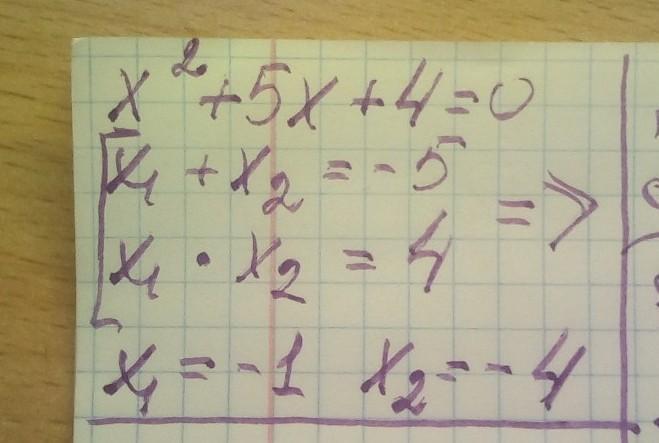 x² + 5x + 4 = 0
[ x₁ + x₂ = -5
x₁ · x₂ = 4 =>
x₁ = -1 x₂ = -4